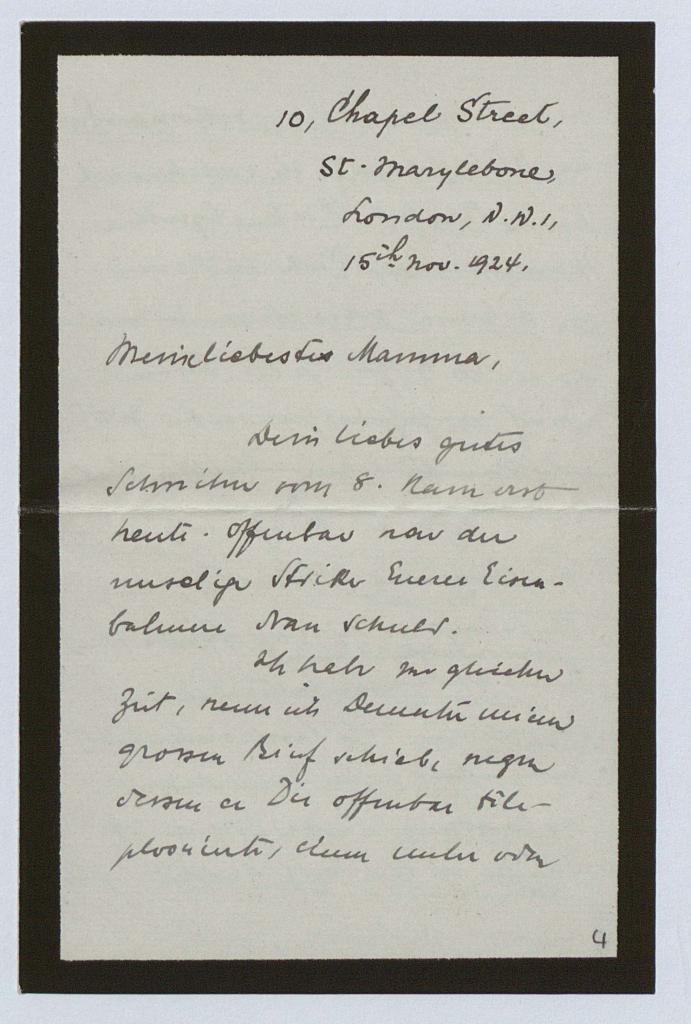 10, Chapel Street,
St. Marylebone,
London, N.W.1,
15th Nov. 1924.
Meine liebeste Mamma,
Dein liebes gutes
Schreiben vom 8. kam erst
heute. Offenbar war der
unselige Strike Euerer Eisen-
bahner dran schuld.
Ich habe zur gleichen
Zeit, wenn ich Demeter meinen
grossen Brief schrieb, wegen
dessen er Dir offenbar tele-
phonierte, einen
4